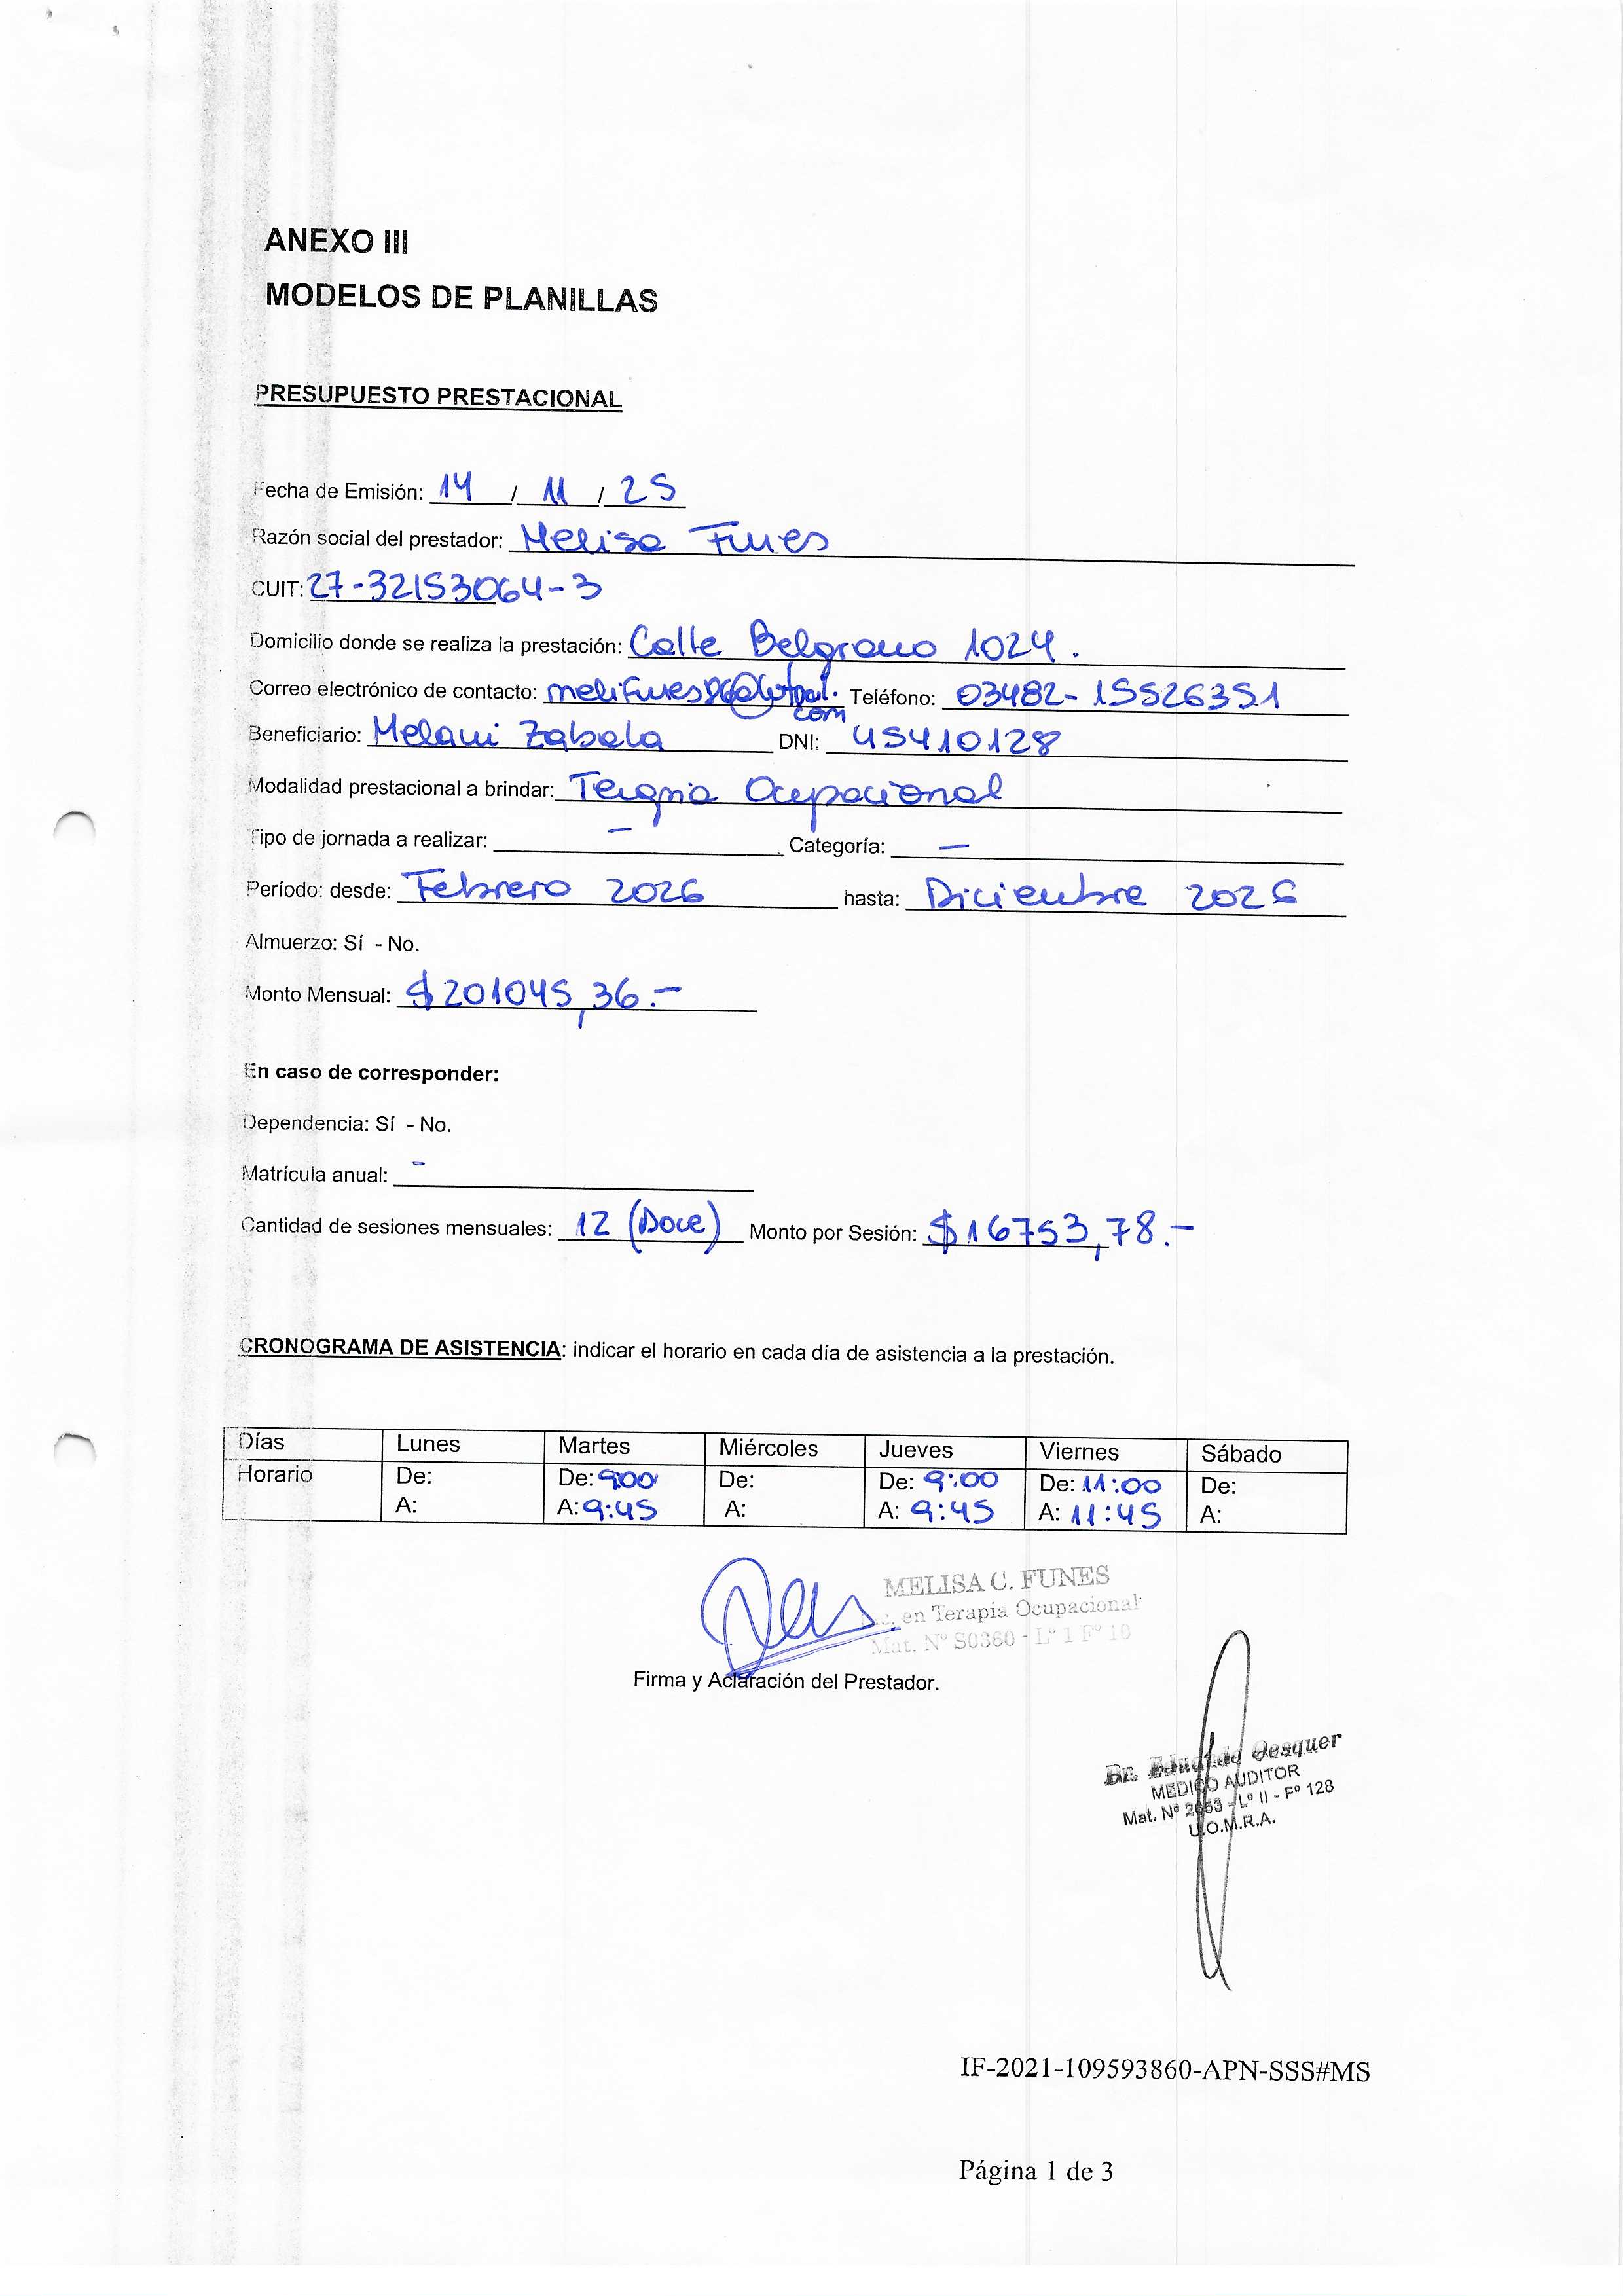 ANEXO III
MODELOS DE PLANILLAS
PRESUPUESTO PRESTACIONAL
Fecha de Emisión: 14 / 11 / 25
Razón social del prestador: Melisa Funes
CUIT: 27-32153064-3
Domicilio donde se realiza la prestación: Calle Belgrano 1024.
Correo electrónico de contacto: Teléfono: 03482-15526351
Beneficiario: Melani Zabala DNI: 45410128
Modalidad prestacional a brindar: Terapia Ocupacional
Tipo de jornada a realizar: — Categoría: —
Período: desde: Febrero 2026 hasta: Diciembre 2026
Almuerzo: Sí - No.
Monto Mensual: $201045,36.-
En caso de corresponder:
Dependencia: Sí - No.
Matrícula anual: -
Cantidad de sesiones mensuales: 12 (Doce) Monto por Sesión: $16753,78.-
CRONOGRAMA DE ASISTENCIA: indicar el horario en cada día de asistencia a la prestación.
Días Lunes Martes Miércoles Jueves Viernes Sábado
Horario De: De: 9:00 De: De: 9:00 De: 11:00 De:
A: A: 9:45 A: A: 9:45 A: 11:45 A:
MELISA C. FUNES
Lic. en Terapia Ocupacional
Mat. Nº S0360 - Lº 1 Fº 10
Firma y Aclaración del Prestador.
Dr. Eduardo Oesquer
MEDICO AUDITOR
Mat. Nº 2653 - Lº II - Fº 128
U.O.M.R.A.
IF-2021-109593860-APN-SSS#MS
Página 1 de 3